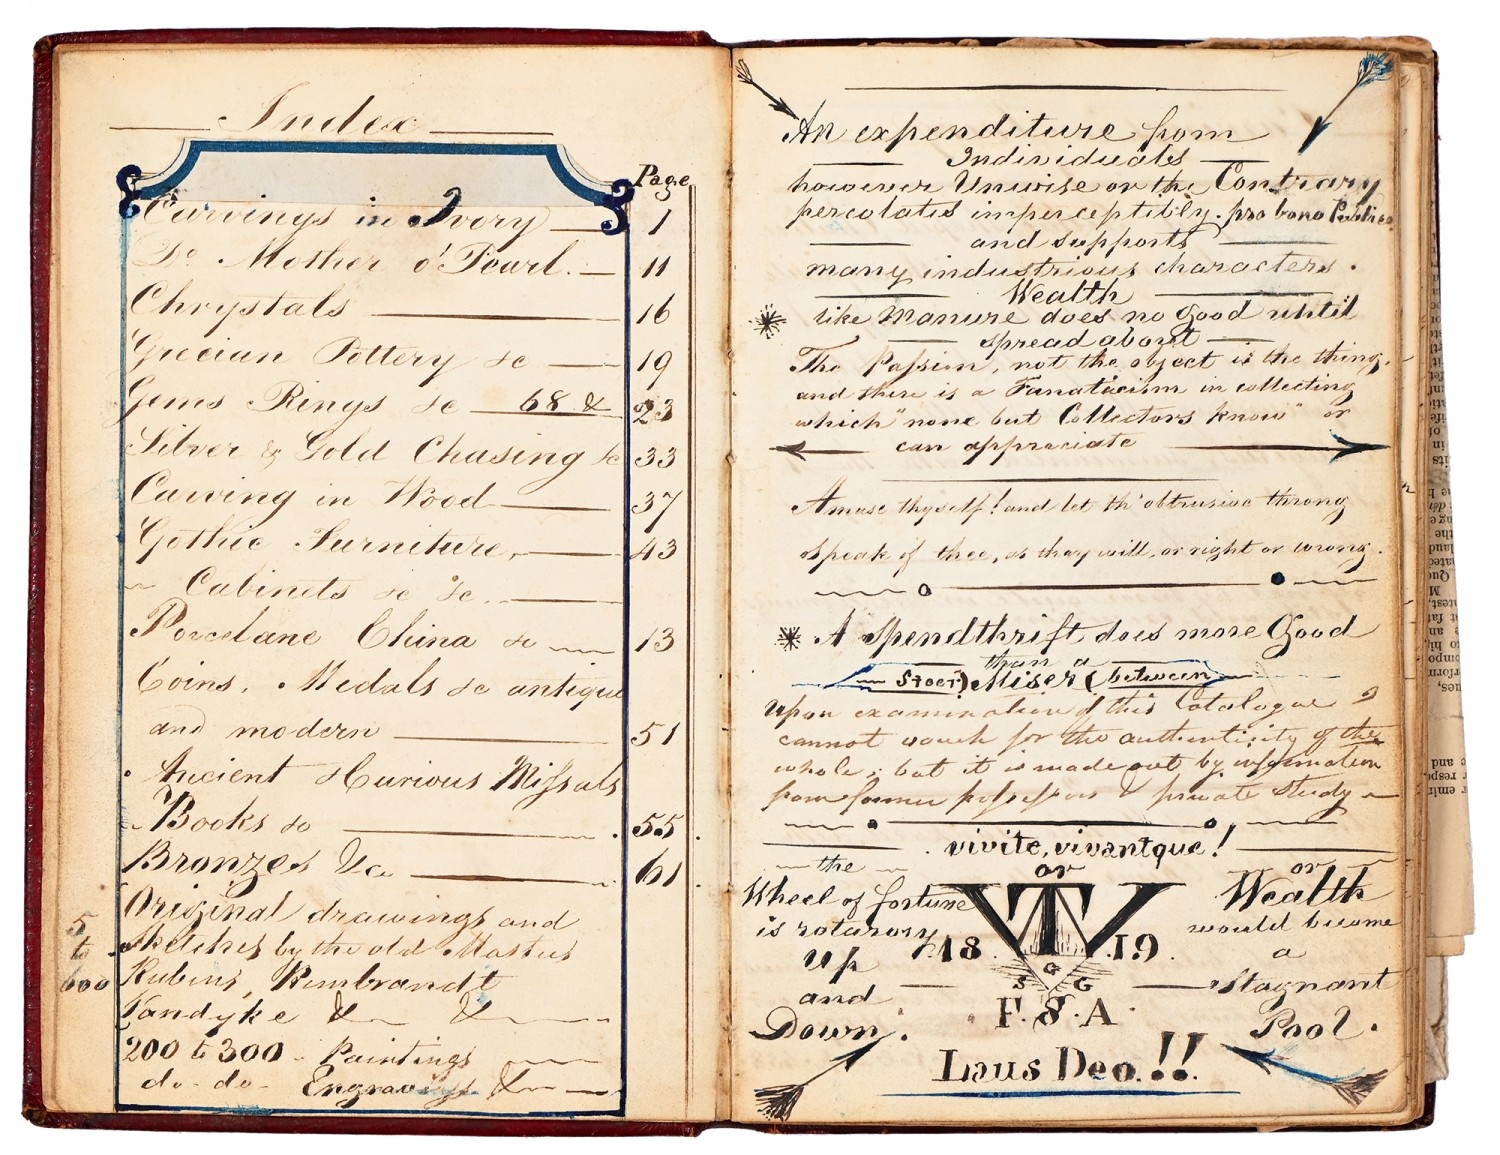 Index
Page
Carvings in Ivory 1
Do. Mother o' Pearl. 11
Chrystals 16
Grecian Pottery &c 19
Gems Rings &c 68 & 23
Silver & Gold Chasing &c 33
Carving in Wood 37
Gothic Furniture, 43
Cabinets &c &c.
Porcelane China &c 13
Coins, Medals &c antique
and modern 51
Ancient & Curious Missals
Books &c 55
Bronzes &c 61
Original drawings and
Sketches by the old Masters
5 to 600
Rubens, Rembrandt
Vandyke &c &c
200 to 300 - Paintings
do - do - Engravings &c
An expenditure from
Individuals
however Unwise or the Contrary
percolates imperceptibly. pro bono Publico
and supports
many industrious characters.
Wealth
like Manure does no good until
spread about
The Passion, not the object is the thing,
and there is a Fanaticism in collecting
which "none but Collectors know" or
can appreciate
Amuse thyself! and let th' obtrusive throng
speak of thee, as they will, or right or wrong.
A Spendthrift does more Good
than a
Steer) Miser (between
Upon examination of this Catalogue I
cannot vouch for the authenticity of the
whole; but it is made out by information
from former possessors & private study
vivite, vivantque!
the or or
Wheel of fortune Wealth
is rotarory would become
up 18 19 a
and S G G Stagnant
Down. F.S.A. Pool.
Laus Deo.!!